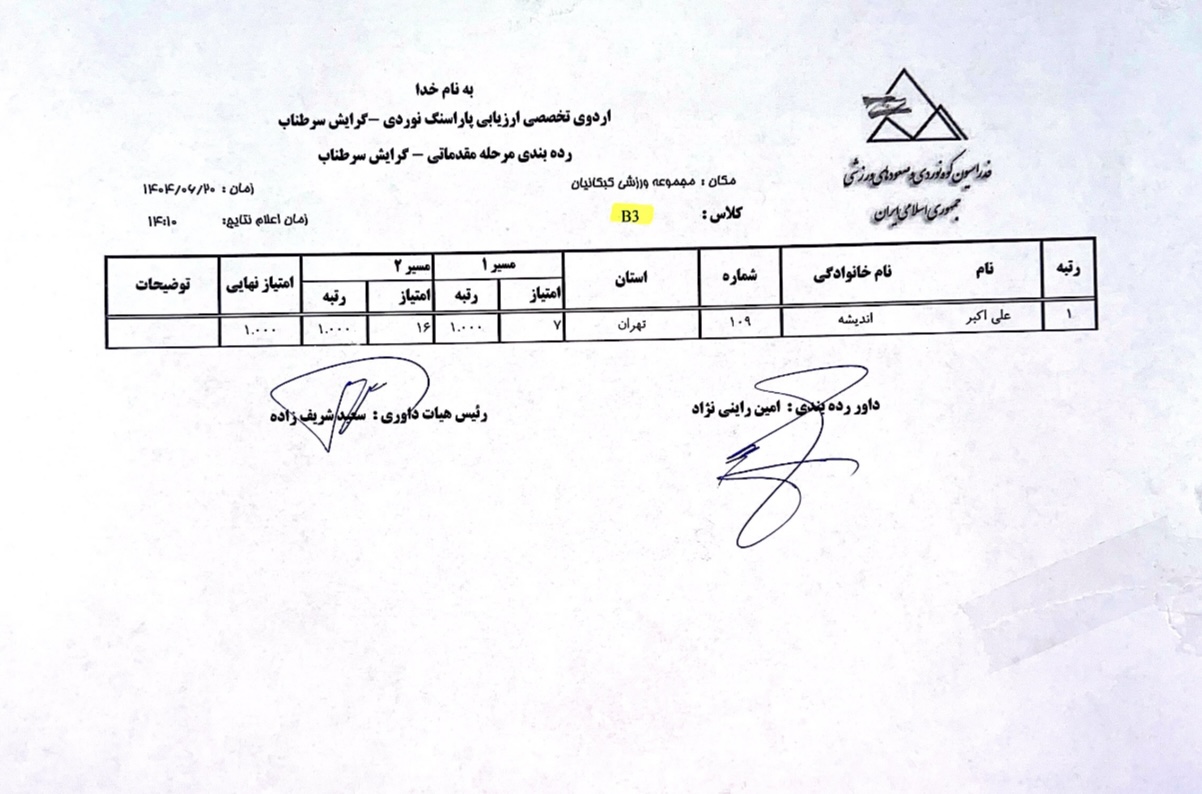 به نام خدا
اردوی تخصصی ارزیابی پاراسنگ نوردی –گرایش سرطناب
رده بندی مرحله مقدماتی – گرایش سرطناب
فدراسیون کوه‌نوردی و صعودهای ورزشی
جمهوری اسلامی ایران
مکان : مجموعه ورزشی کبکانیان زمان : ۱۴۰۴/۰۶/۲۰
کلاس : B3 زمان اعلام نتایج: ۱۴:۱۰
رتبه نام نام خانوادگی شماره استان مسیر ۱ مسیر ۲ امتیاز نهایی توضیحات
امتیاز رتبه امتیاز رتبه
۱ علی اکبر اندیشه ۱۰۹ تهران ۷ ۱.۰۰۰ ۱۶ ۱.۰۰۰ ۱.۰۰۰
داور رده بندی : امین راینی نژاد رئیس هیات داوری : سعید شریف زاده